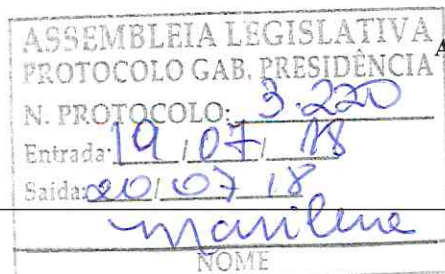 ASSEMBLEIA LEGISLATIVA
PROTOCOLO GAB. PRESIDÊNCIA
N. PROTOCOLO: 3.220
Entrada: 19 / 07 / 18
Saída: 20 / 07 / 18
Marilene
NOME